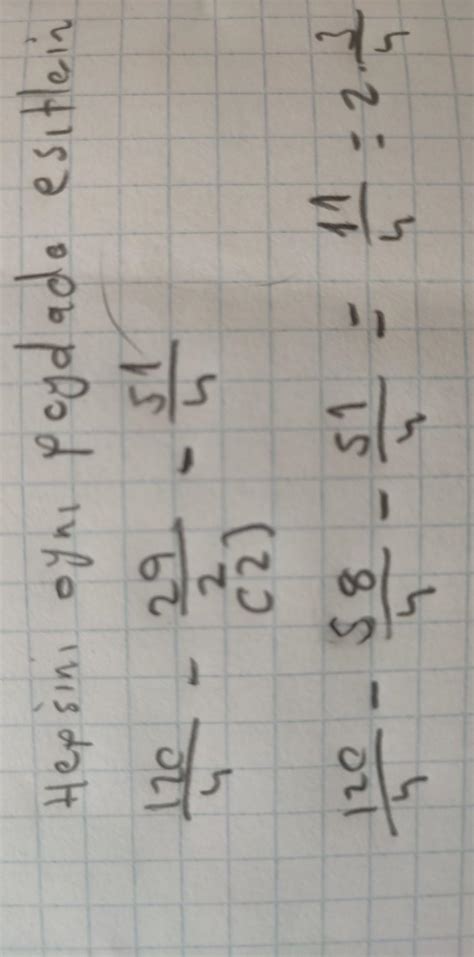 Hepsini aynı paydada esitlein
120/4 - 29/2 - 51/4
(2)
120/4 - 58/4 - 51/4 = 11/4 = 2 3/4